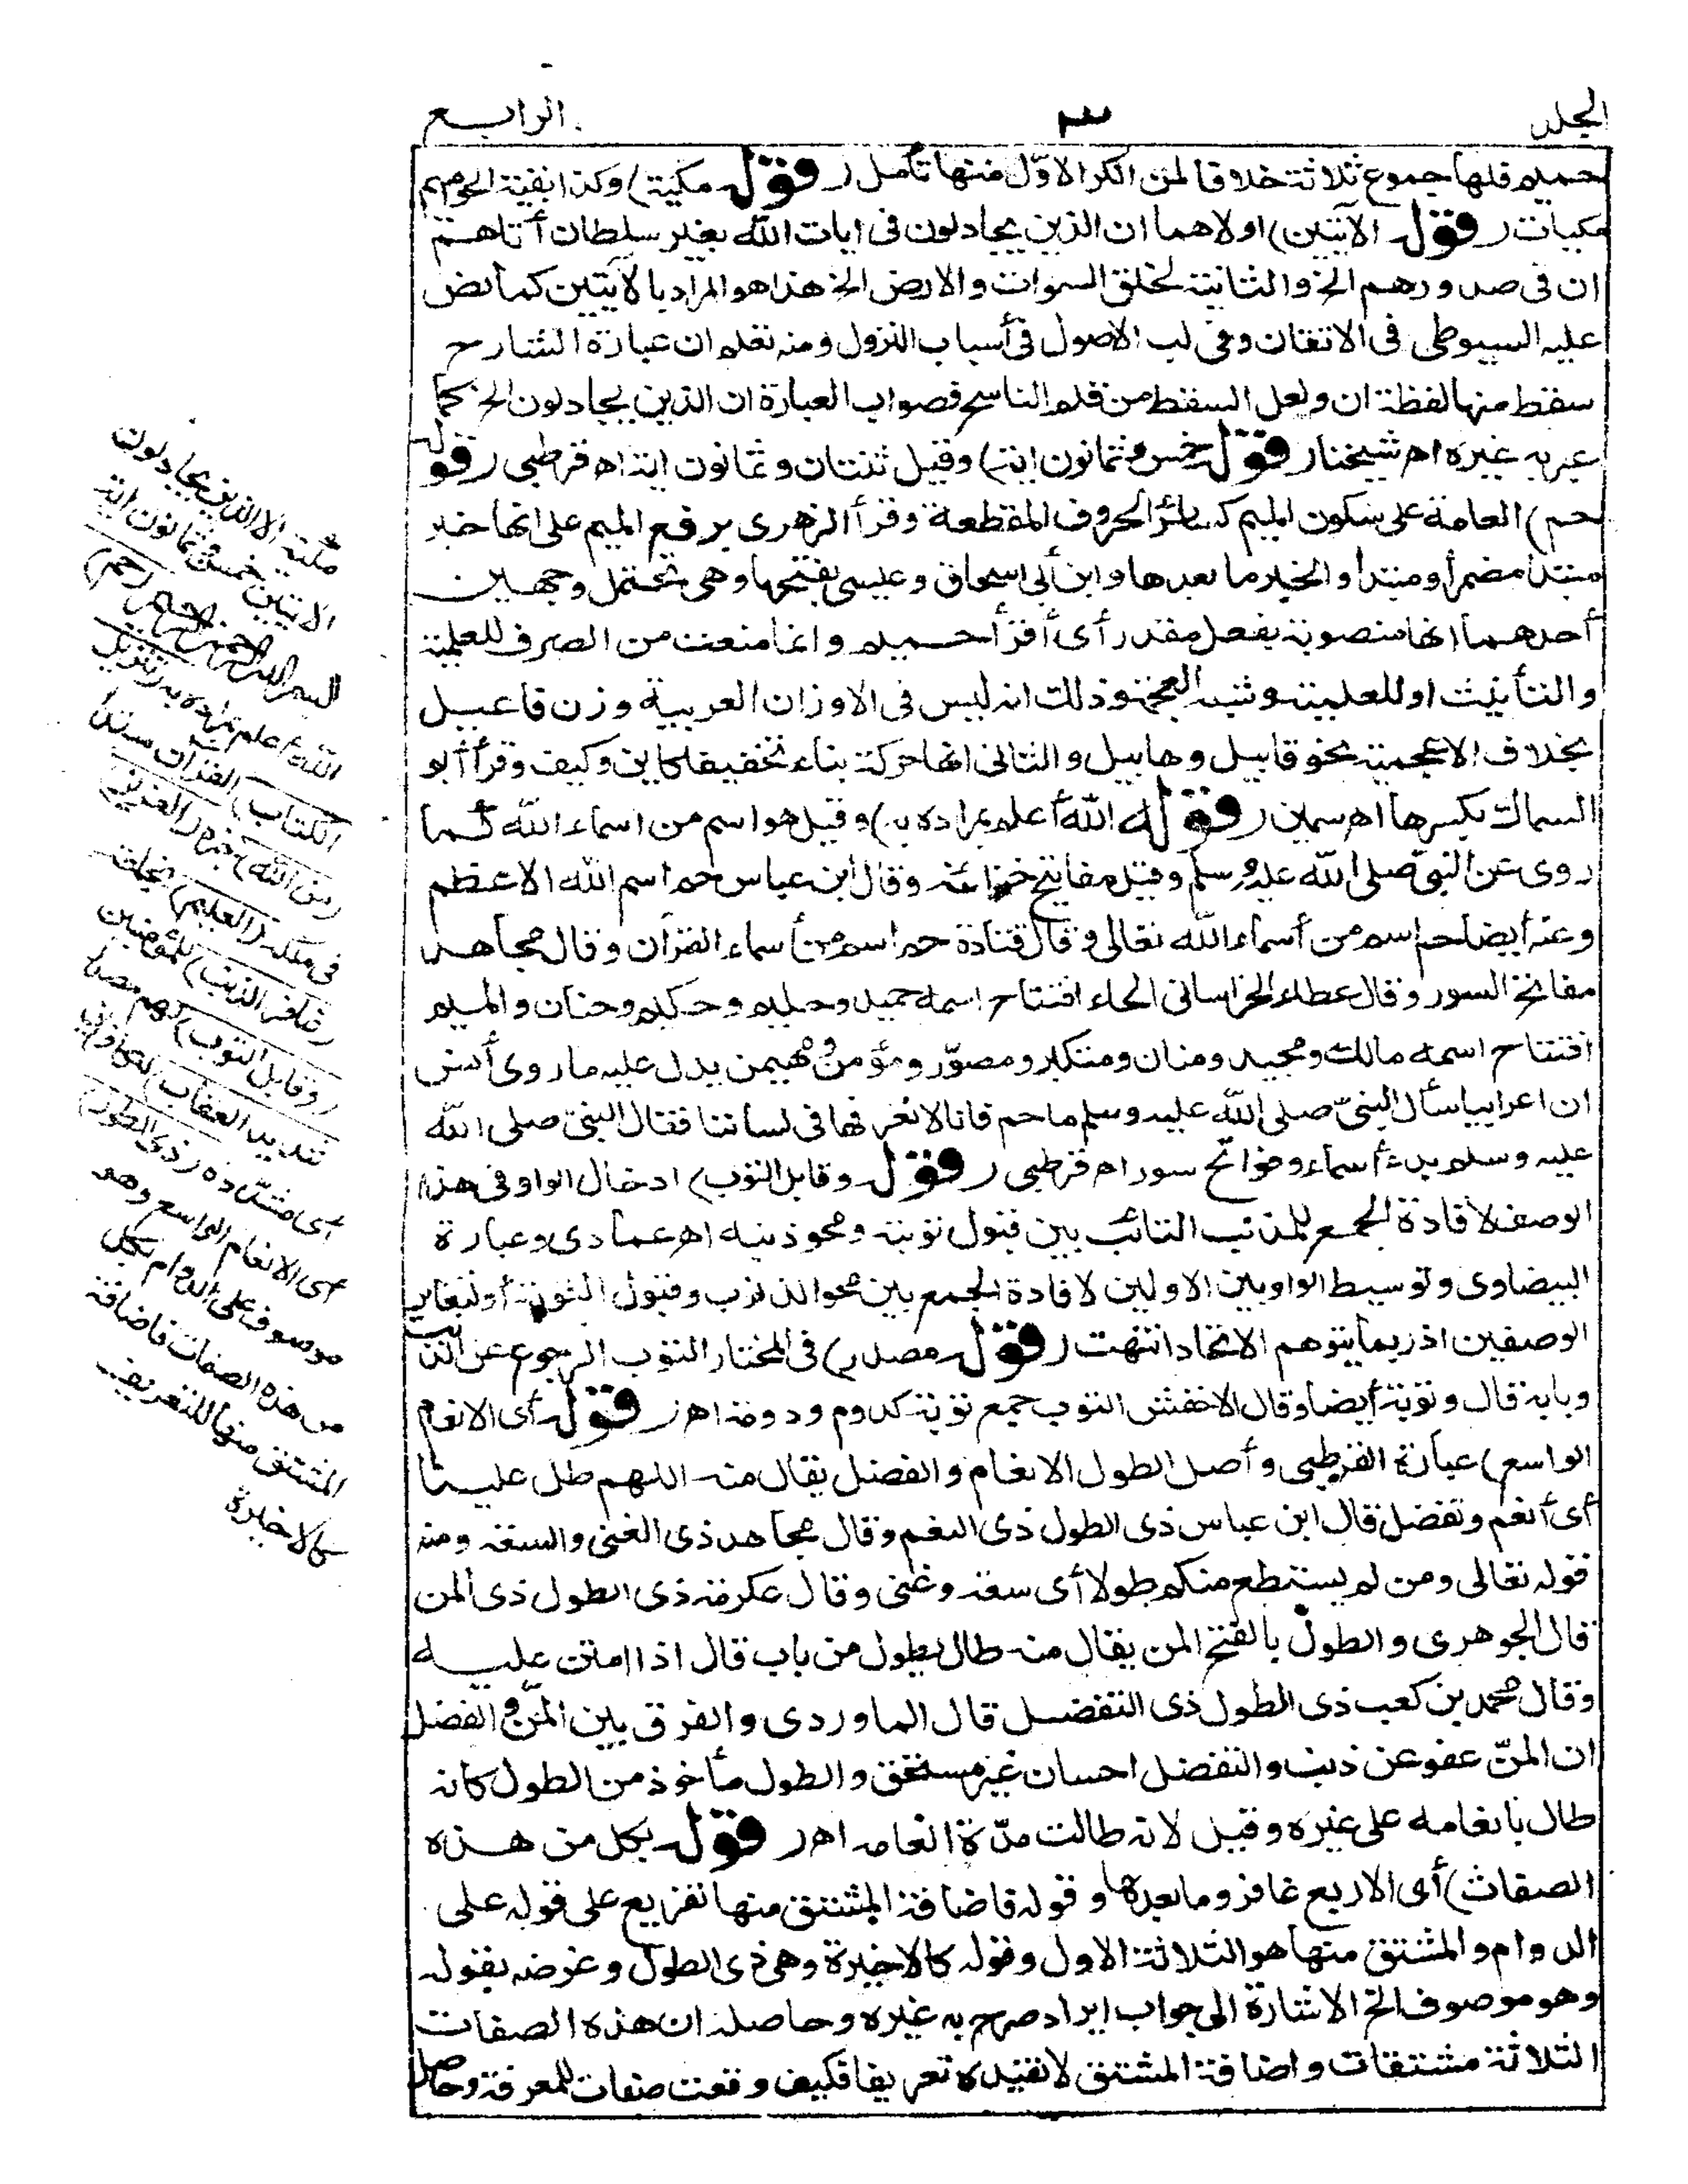 الجلد
٣
الرابع
حميم فلها جموع ثلاثة خلافا لمن انكر الاول منها تأمل (قوله مكية) وكذا بقية الحواميم
مكيات (قوله الا آيتين) اولاهما ان الذين يجادلون فى ايات الله بغير سلطان أتاهم
ان فى صدورهم الخ والثانية لخلق السموات والارض الخ هذا هو المراد بالآيتين كما نص
عليه السيوطى فى الاتقان وفى لب الاصول فى أسباب النزول ومنه تعلم ان عبارة الشارح
سقط منها لفظة ان ولعل السقط من قلم الناسخ فصواب العبارة ان الذين يجادلون الخ كما
عبر به غيره اه شيخنا (قوله خمس وثمانون اية) وقيل ثنتان وثمانون اية اه قرطبى (قوله
حم) العامة على سكون الميم كسائر الحروف المقطعة وقرأ الزهرى برفع الميم على انها خبر
مبتدا مضمر أو مبتدا والخبر ما بعدها وابن أبى اسحاق وعيسى بفتحها وهى تحتمل وجهين
أحدهما انها منصوبة بفعل مقدر أى أقرأ حميم وانما منعت من الصرف للعلمية
والتأنيث او للعلمية وشبه العجمة وذلك انه ليس فى الاوزان العربية وزن فاعيل
بخلاف الاعجمية نحو قابيل وهابيل والثانى انها حركة بناء تخفيفا كاين وكيف وقرأ أبو
السماك بكسرها اه سمين (قوله الله أعلم بمراده به) وقيل هو اسم من اسماء الله كما
روى عن النبى صلى الله عليه وسلم وقيل مفاتيح خزائنه وقال ابن عباس حم اسم الله الاعظم
وعنه أيضا حم اسم من أسماء الله تعالى وقال قتادة حم اسم من أسماء القرآن وقال مجاهد
مفاتح السور وقال عطاء الخراسانى الحاء افتتاح اسمه حميد وحليم وحكيم وحنان والميم
افتتاح اسمه مالك ومجيد ومنان ومتكبر ومصوّر ومؤمن ومهيمن يدل عليه ما روى أنس
ان اعرابيا سأل النبىّ صلى الله عليه وسلم ما حم فانا لا نعرفها فى لساننا فقال النبى صلى الله
عليه وسلم بدء أسماء وفواتح سور اه قرطبى (قوله وقابل التوب) ادخال الواو فى هذا
الوصف لافادة الجمع للمذنب التائب بين قبول توبته ومحو ذنبه اه عمادى وعبارة
البيضاوى وتوسيط الواو بين الاولين لافادة الجمع بين محو الذنوب وقبول التوبة أو تغاير
الوصفين اذ ربما يتوهم الاتحاد انتهت (قوله مصدر) فى المختار التوب الرجوع عن الذنب
وبابه قال وتوبة أيضا وقال الاخفش التوب جمع توبة كدوم ودومة اه (قوله أى الانعام
الواسع) عبارة القرطبى وأصل الطول الانعام والفضل يقال منه اللهم طل علينا
أى أنعم وتفضل قال ابن عباس ذى الطول ذى النعم وقال مجاهد ذى الغنى والسعة ومنه
قوله تعالى ومن لم يستطع منكم طولا أى سعة وغنى وقال عكرمة ذى الطول ذى المن
قال الجوهرى والطول بالفتح المن يقال منه طال يطول من باب قال اذا امتن عليه
وقال محمد بن كعب ذى الطول ذى التفضل قال الماوردى والفرق بين المنّ والفضل
ان المنّ عفو عن ذنب والتفضل احسان غير مستحق والطول مأخوذ من الطول كانه
طال بانعامه على غيره وقيل لانه طالت مدّة انعامه اه (قوله بكل من هذه
الصفات) أى الاربع غافر وما بعدها وقوله فاضافة المشتق منها تفريع على قوله على
الدوام والمشتق منها هو الثلاثة الاول وقوله كالاخيرة وهى ذى الطول وغرضه بقوله
وهو موصوف الخ الاشارة الى جواب ايراد صرح به غيره وحاصله ان هذه الصفات
الثلاثة مشتقات واضافة المشتق لا تفيده تعريفا فكيف وقعت صفات للمعرفة وحاصل
مكية الا الذين يجادلون
الايتين خمس وثمانون اية
بسم الله الرحمن الرحيم (حم)
الله أعلم بمراده به (تنزيل
الكتاب) القرآن مبتدأ
(من الله) خبره (العزيز)
فى ملكه (العليم) بخلقه
(غافر الذنب) للمؤمنين
(وقابل التوب) لهم مصدر
(شديد العقاب) للكافرين
أى مشدّده (ذى الطول)
أى الانعام الواسع وهو
موصوف على الدوام بكل
من هذه الصفات فاضافة
المشتق منها للتعريف
كالاخيرة